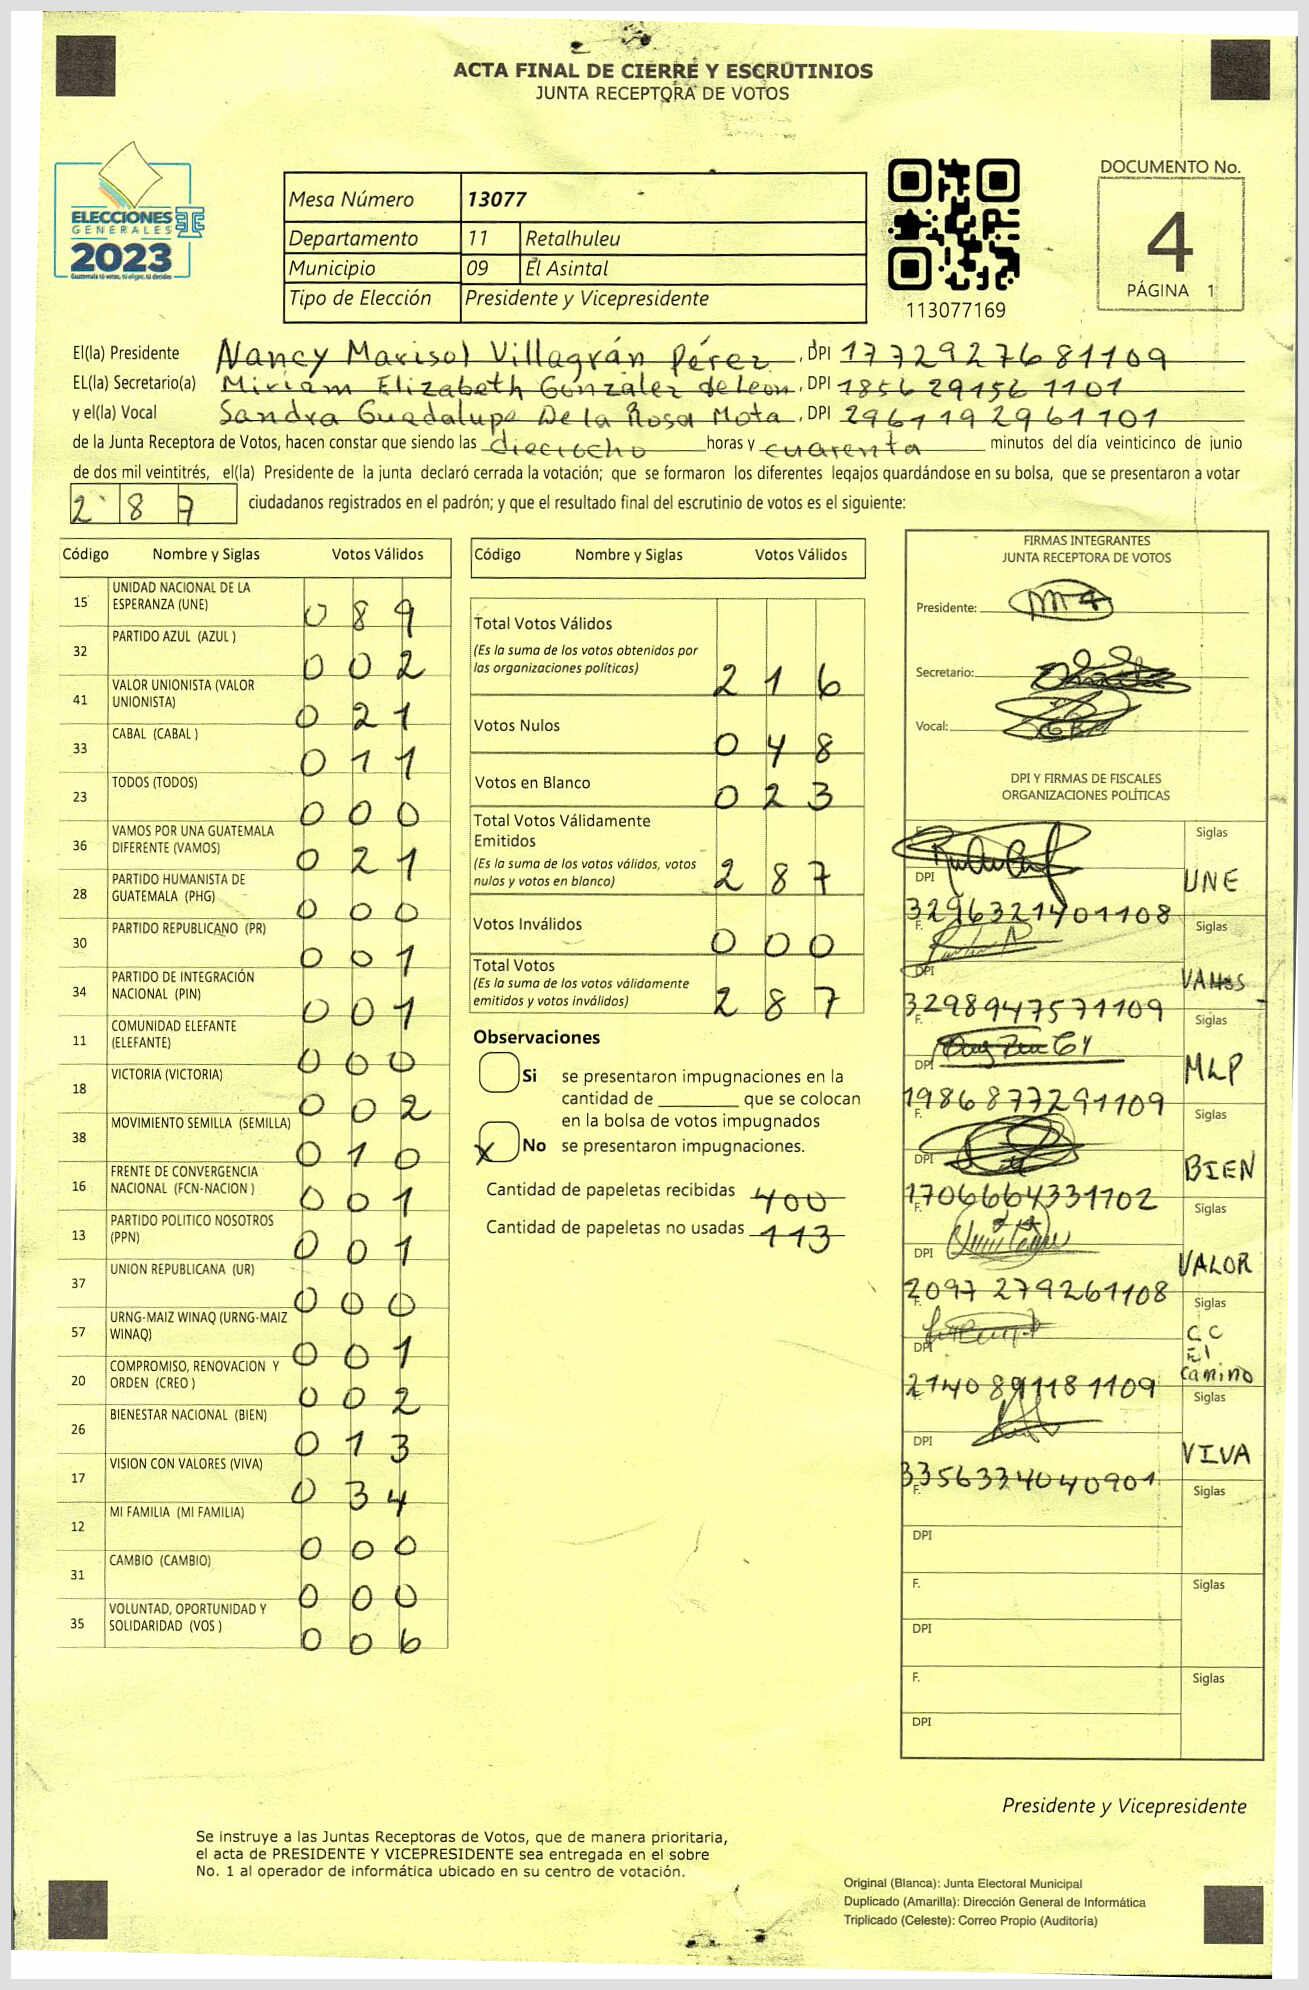 ACTA FINAL DE CIERRE Y ESCRUTINIOS
JUNTA RECEPTORA DE VOTOS
ELECCIONES
GENERALES
2023
Guatemala tú votas, tú eliges, tú decides
Mesa Número 13077
Departamento 11 Retalhuleu
Municipio 09 El Asintal
Tipo de Elección Presidente y Vicepresidente
113077169
DOCUMENTO No.
4
PÁGINA 1
El(la) Presidente Nancy Marisol Villagrán Pérez, DPI 1772927681109
EL(la) Secretario(a) Miriám Elizabeth González de León, DPI 1856291561101
y el(la) Vocal Sandra Guadalupe De la Rosa Mota, DPI 2961192961101
de la Junta Receptora de Votos, hacen constar que siendo las dieciocho horas y cuarenta minutos del día veinticinco de junio
de dos mil veintitrés, el(la) Presidente de la junta declaró cerrada la votación; que se formaron los diferentes legajos guardándose en su bolsa, que se presentaron a votar
287 ciudadanos registrados en el padrón; y que el resultado final del escrutinio de votos es el siguiente:
Código Nombre y Siglas Votos Válidos
15 UNIDAD NACIONAL DE LA ESPERANZA (UNE) 089
32 PARTIDO AZUL (AZUL ) 002
41 VALOR UNIONISTA (VALOR UNIONISTA) 021
33 CABAL (CABAL ) 011
23 TODOS (TODOS) 000
36 VAMOS POR UNA GUATEMALA DIFERENTE (VAMOS) 021
28 PARTIDO HUMANISTA DE GUATEMALA (PHG) 000
30 PARTIDO REPUBLICANO (PR) 001
34 PARTIDO DE INTEGRACIÓN NACIONAL (PIN) 001
11 COMUNIDAD ELEFANTE (ELEFANTE) 000
18 VICTORIA (VICTORIA) 002
38 MOVIMIENTO SEMILLA (SEMILLA) 010
16 FRENTE DE CONVERGENCIA NACIONAL (FCN-NACION ) 001
13 PARTIDO POLITICO NOSOTROS (PPN) 001
37 UNION REPUBLICANA (UR) 000
57 URNG-MAIZ WINAQ (URNG-MAIZ WINAQ) 001
20 COMPROMISO, RENOVACION Y ORDEN (CREO ) 002
26 BIENESTAR NACIONAL (BIEN) 013
17 VISION CON VALORES (VIVA) 034
12 MI FAMILIA (MI FAMILIA) 000
31 CAMBIO (CAMBIO) 000
35 VOLUNTAD, OPORTUNIDAD Y SOLIDARIDAD (VOS ) 006
Código Nombre y Siglas Votos Válidos
Total Votos Válidos
(Es la suma de los votos obtenidos por
las organizaciones políticas) 216
Votos Nulos 048
Votos en Blanco 023
Total Votos Válidamente
Emitidos
(Es la suma de los votos válidos, votos
nulos y votos en blanco) 287
Votos Inválidos 000
Total Votos
(Es la suma de los votos válidamente
emitidos y votos inválidos) 287
Observaciones
Si se presentaron impugnaciones en la
cantidad de ________ que se colocan
en la bolsa de votos impugnados
X No se presentaron impugnaciones.
Cantidad de papeletas recibidas 400
Cantidad de papeletas no usadas 113
FIRMAS INTEGRANTES
JUNTA RECEPTORA DE VOTOS
Presidente:
Secretario:
Vocal:
DPI Y FIRMAS DE FISCALES
ORGANIZACIONES POLÍTICAS
F. Siglas
DPI UNE
3296321401108
F. Siglas
DPI VAMOS
3298947571109
F. Siglas
DPI MLP
1986877291109
F. Siglas
DPI BIEN
1706664331102
F. Siglas
DPI VALOR
2097 279261108
F. Siglas
DPI CC El Camino
2140 891181109
F. Siglas
DPI VIVA
3356334040901
F. Siglas
DPI
F. Siglas
DPI
F. Siglas
DPI
Presidente y Vicepresidente
Se instruye a las Juntas Receptoras de Votos, que de manera prioritaria,
el acta de PRESIDENTE Y VICEPRESIDENTE sea entregada en el sobre
No. 1 al operador de informática ubicado en su centro de votación.
Original (Blanca): Junta Electoral Municipal
Duplicado (Amarilla): Dirección General de Informática
Triplicado (Celeste): Correo Propio (Auditoría)